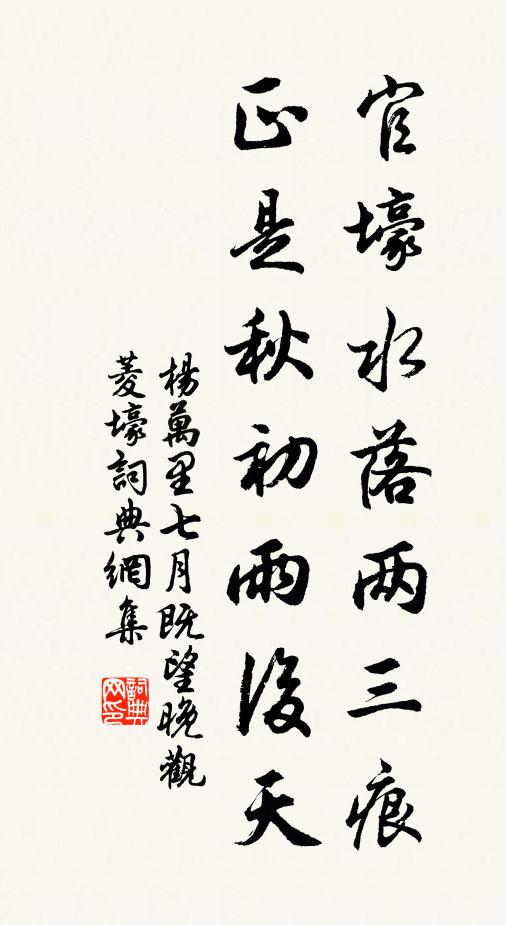 官壕水落两三痕
正是秋初雨後天
楊萬里七月既望晚觀
菱壕詞典網集
詞典
网印